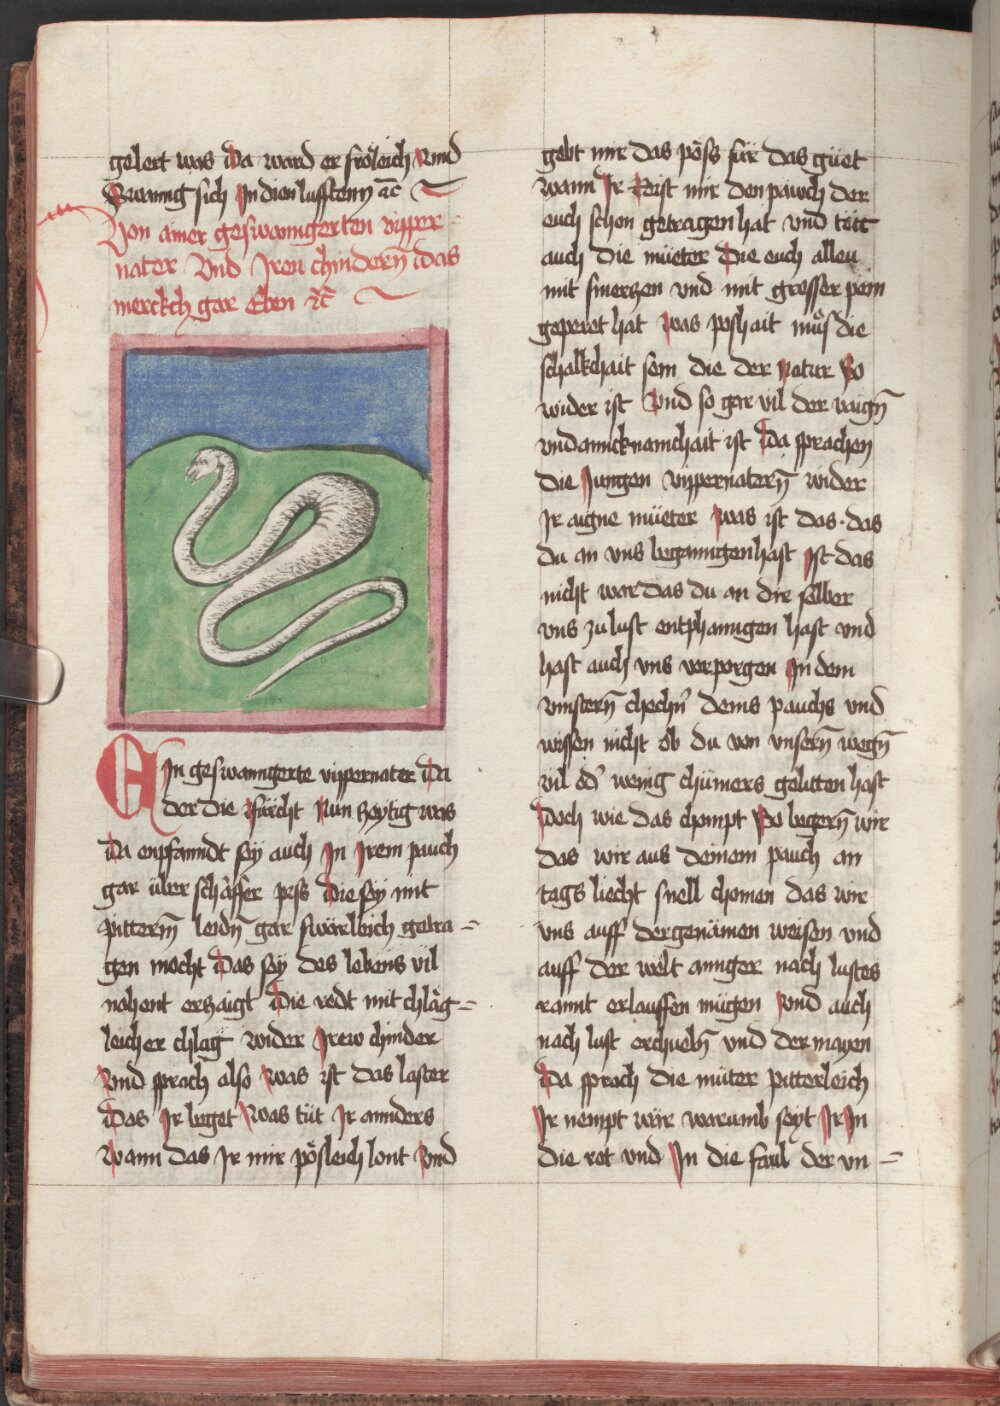 gelert was Da ward er fröleich Und
Swanng sich In dien lufftenn ac̄
Von ainer geswanngerten vipper-
nater Und Iren chindern̄ Das
merckch gar Eben ac̄
EIn geswanngerte vippernater Da
der die frücht Nun zeytig was
Da enpfanndt sÿ auch In Irem pauch
gar über schäffer press Die sÿ mit
pitterm̄ leidn̄ gar swärleich getra=
gen mocht Das sÿ des lebens vil
nahent erzaigt Die redt mit chläg=
leicher chlag wider Irew chinder
Und sprach also Was ist das laster
Das Ir leget Was tüt Ir annders
Wann das Ir mir pösleich lont Und
gebt mir das pöss für das güet
Wann Ir Reist mir den pawch der
euch schon getragen hat und tött
auch die müeter Die euch allen
mit smerzen und mit grosser pein
geperet hat Was poshait müs die
schalkchait sein die der Natur So
wider ist Und so gar vil der vaign̄
vndanncknamchait ist Da sprachen
die Jungen vippernatern̄ wider
Ir aigne müeter Was ist das das
du an vns beganngen hast Ist das
nicht war das du an dir selber
vns zu lust entphanngen hast und
hast auch vns verporgen In dem
vinstern̄ chechn̄ deins pauchs und
wissen nicht ob du von vnsern̄ wegn̄
vil od̄ wenig chümers gelitten hast
Doch wie das chompt So begern̄ wir
das wir aus deinem pauch an
tags liecht snell chomen das wir
vns auff der genämen weisen und
auff der welt annger nach lustes
ramit erlauffen mügen Und auch
nach lust erchueln̄ und der mayen
Da sprach die müter pitterleich
Ir nempt wär warumb seyt Ir In
die ret und In die fawl der vn=